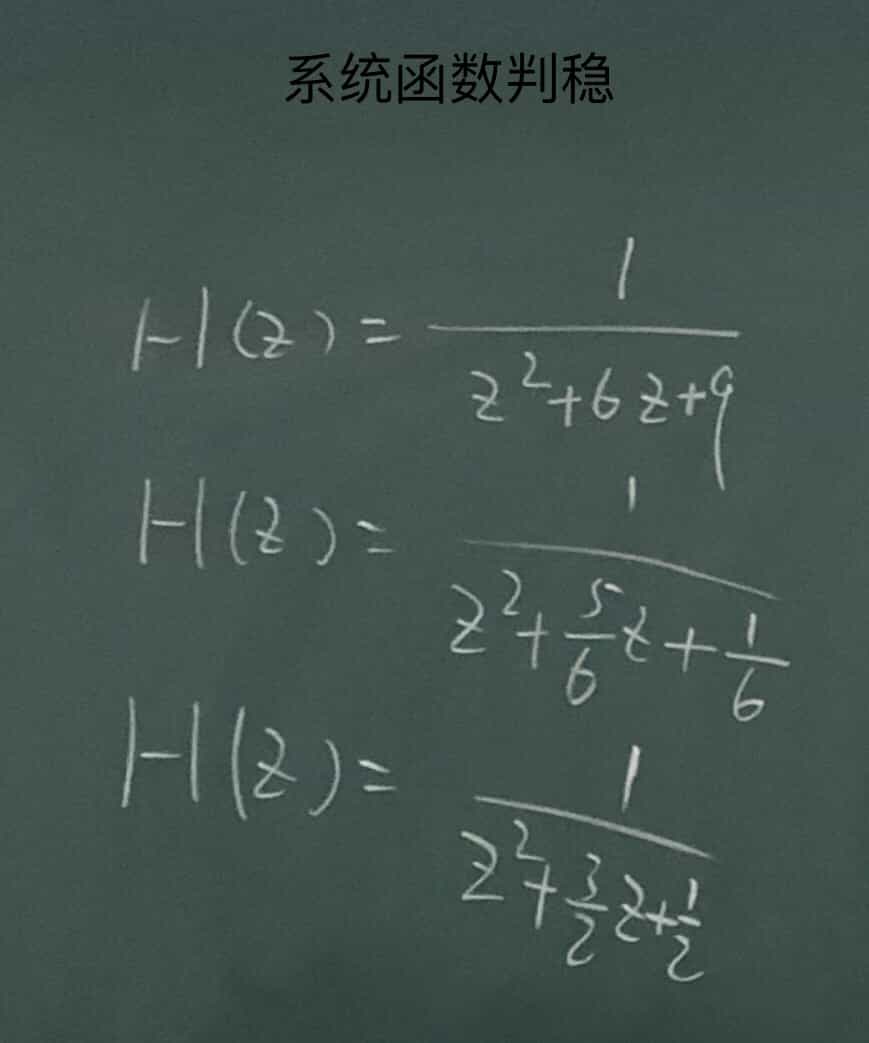 系统函数判稳
H(z) = 1/(z²+6z+9)
H(z) = 1/(z²+5/6z+1/6)
H(z) = 1/(z²+3/2z+1/2)